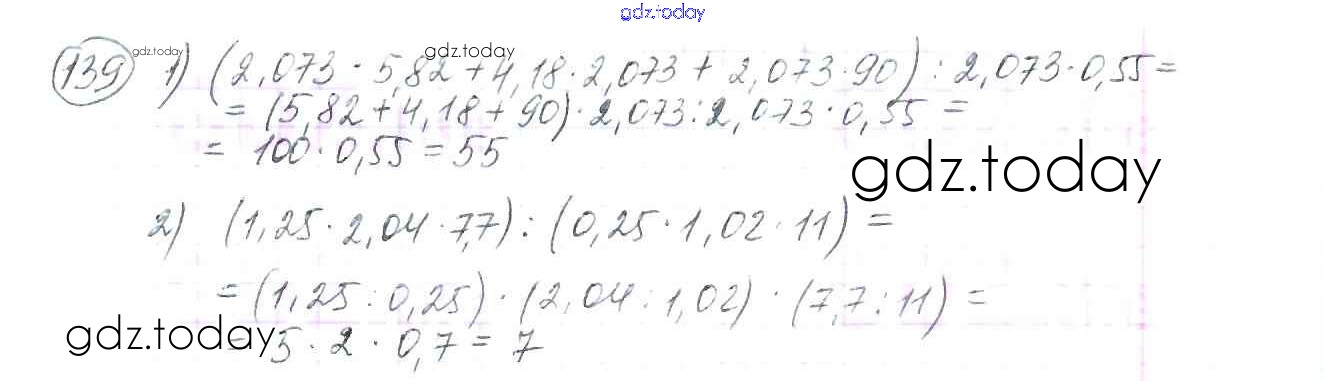 gdz.today
139 gdz.today 1) gdz.today (2,073 · 5,82 + 4,18 · 2,073 + 2,073 · 90) : 2,073 · 0,55 =
= (5,82 + 4,18 + 90) · 2,073 : 2,073 · 0,55 =
= 100 · 0,55 = 55
gdz.today
2) (1,25 · 2,04 · 7,7) : (0,25 · 1,02 · 11) =
= (1,25 : 0,25) · (2,04 : 1,02) · (7,7 : 11) =
gdz.today
= 5 · 2 · 0,7 = 7